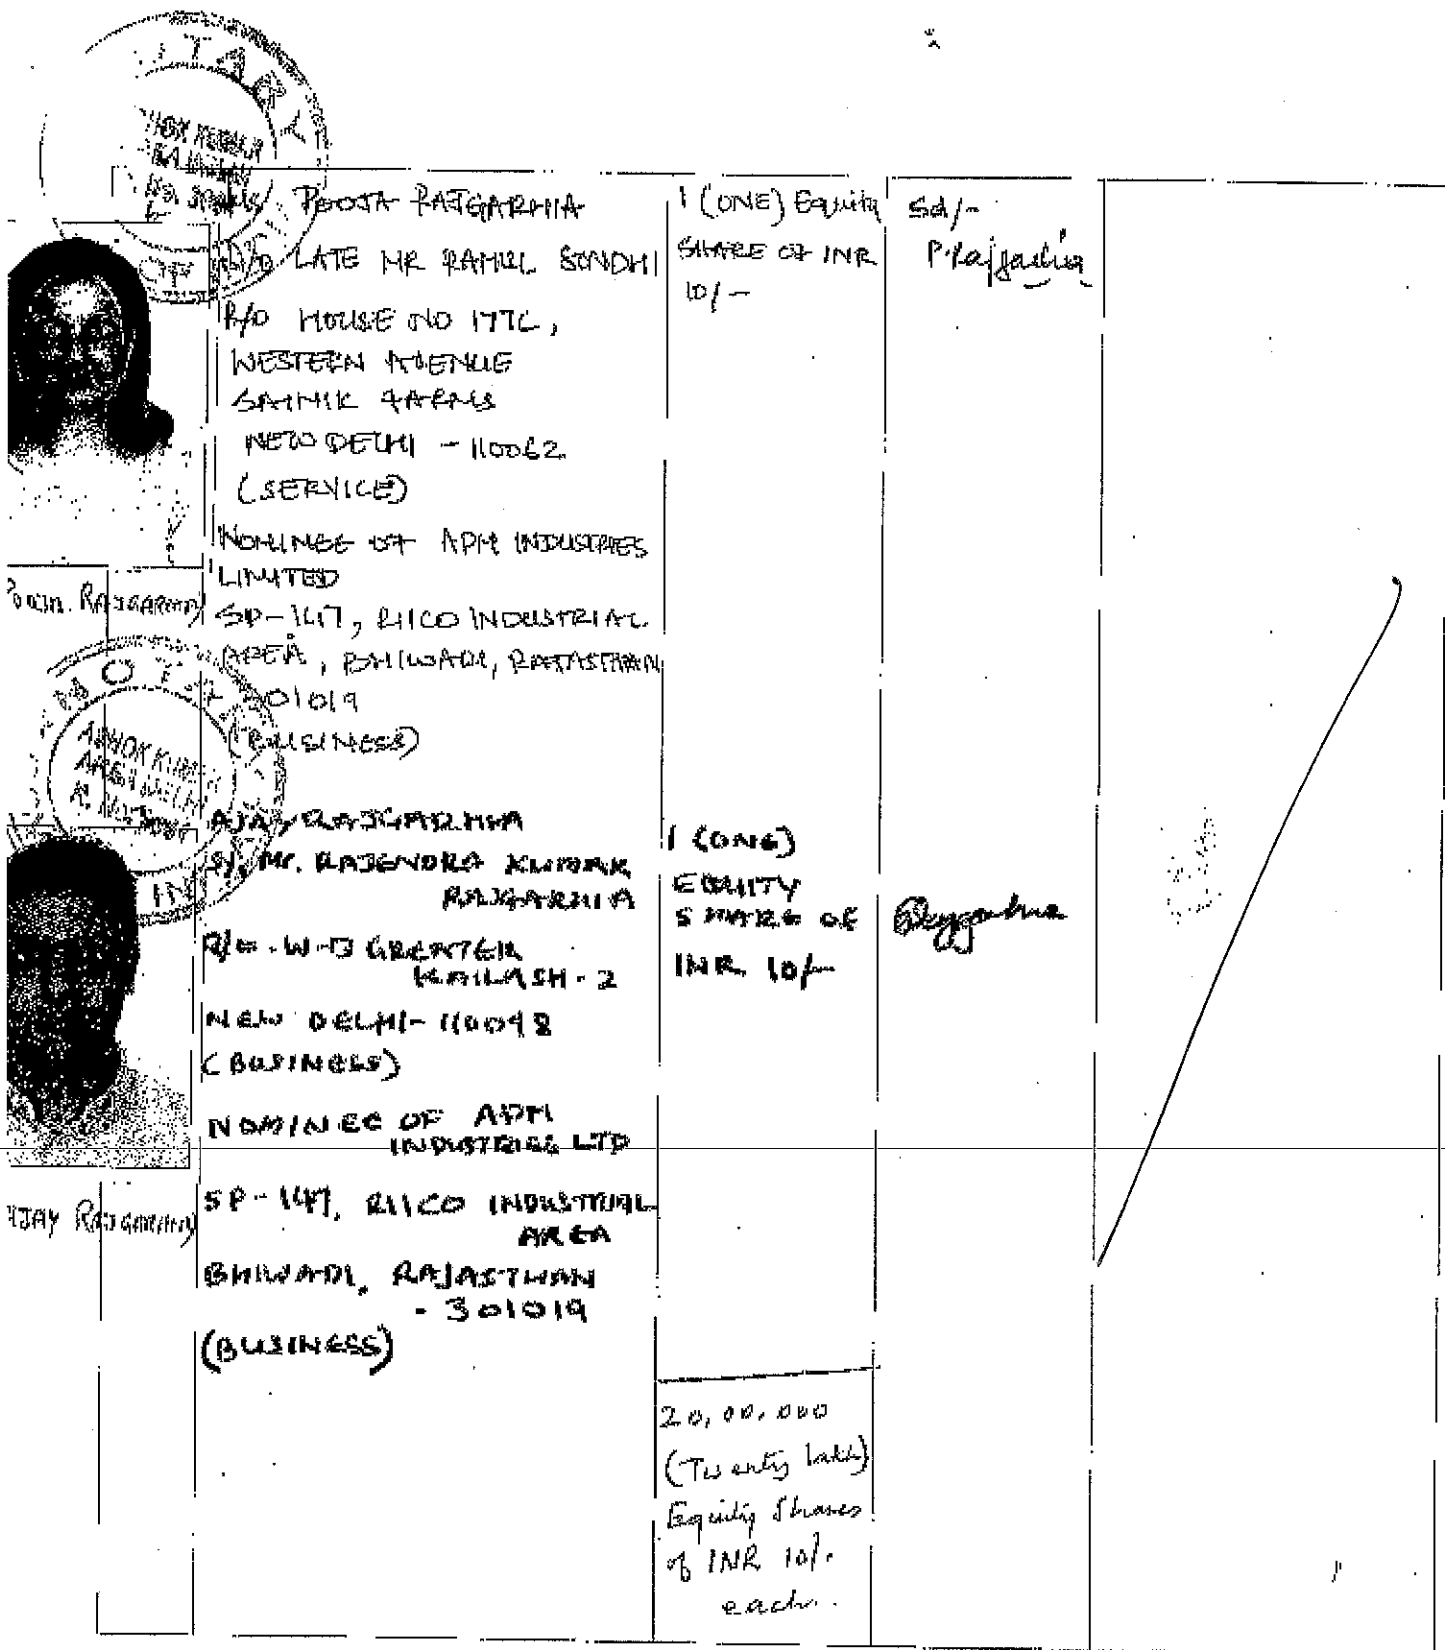 NOTARY
POOJA RAJGARHIA
D/O LATE MR RAHUL SONDHI
R/O HOUSE NO 177C,
WESTERN AVENUE
SAINIK FARMS
NEW DELHI - 110062
(SERVICE)
NOMINEE OF APM INDUSTRIES
LIMITED
SP-147, RIICO INDUSTRIAL
AREA, BHIWADI, RAJASTHAN
301019
(BUSINESS)
1 (ONE) Equity
SHARE OF INR
10/-
Sd/-
P. Rajgarhia
POOJA RAJGARHIA
NOTARY
ASHOK KUMAR
AJAY RAJGARHIA
S/o Mr. RAJENDRA KUMAR
RAJGARHIA
R/O - W- GREATER
KAILASH - 2
NEW DELHI - 110048
(BUSINESS)
NOMINEE OF APM
INDUSTRIES LTD
SP-147, RIICO INDUSTRIAL
AREA
BHIWADI, RAJASTHAN
- 301019
(BUSINESS)
1 (ONE)
EQUITY
SHARE OF
INR 10/-
AJAY RAJGARHIA
20,00,000
(Twenty lakh)
Equity Shares
of INR 10/-
each.